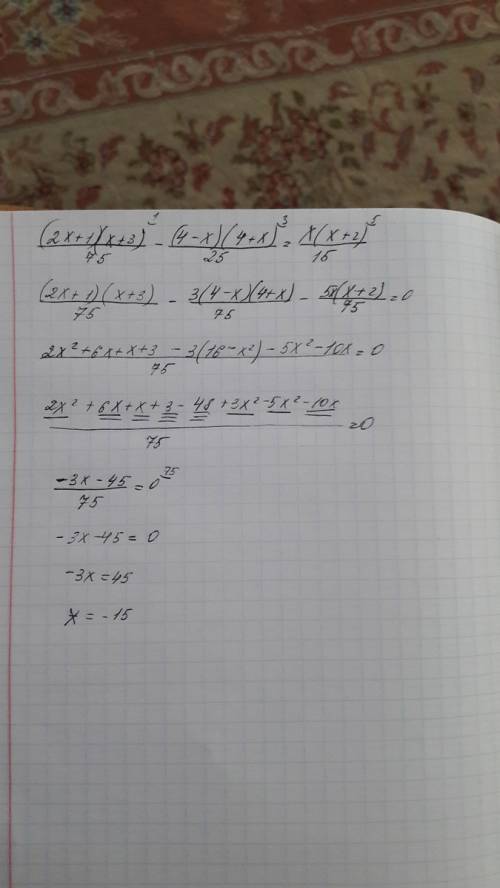 (2x+1)(x+3)¹/75 - (4-x)(4+x)³/25 = x(x+2)⁵/15
(2x+1)(x+3)/75 - 3(4-x)(4+x)/75 - 5x(x+2)/75 = 0
2x²+6x+x+3 - 3(16-x²) - 5x² - 10x/75 = 0
2x² + 6x + x + 3 - 48 + 3x² - 5x² - 10x/75 = 0
-3x - 45/75 = 0 75
-3x - 45 = 0
-3x = 45
x = -15